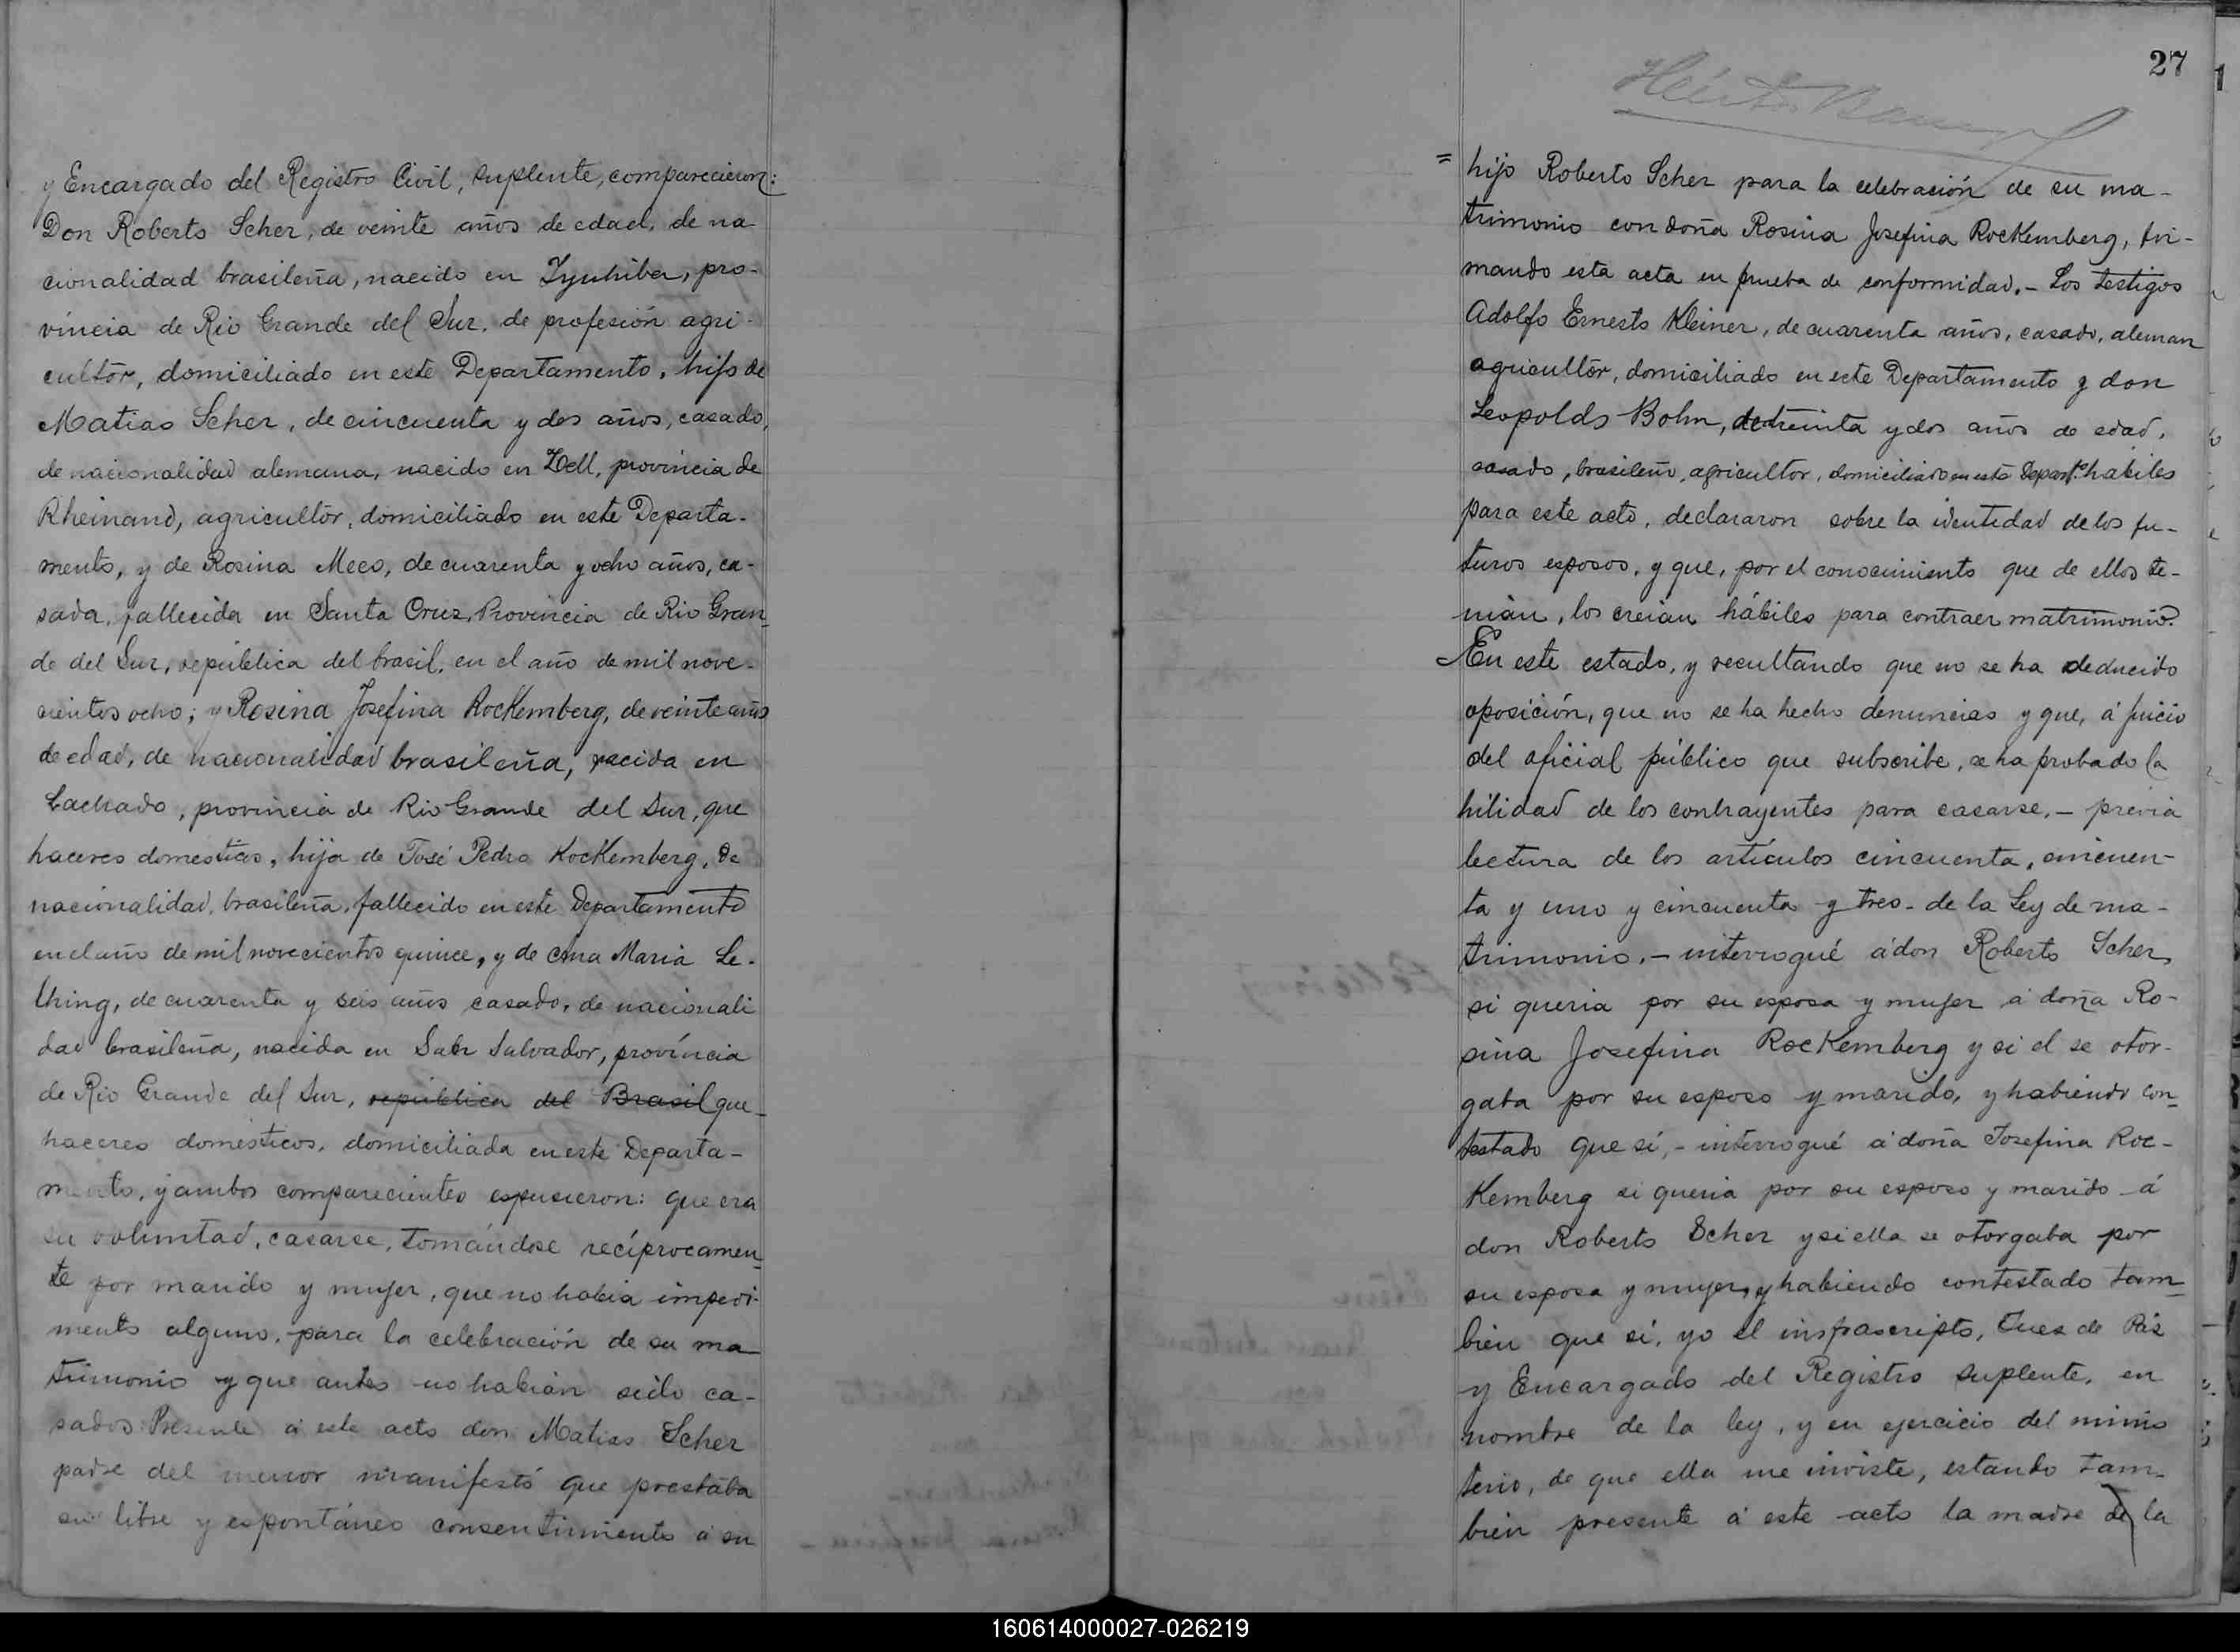 y Encargado del Registro Civil, suplente, comparecieron:
Don Roberto Scher, de veinte años de edad, de na
cionalidad brasileña, nacido en Iyuhiber, pro-
vincia de Rio Grande del Sur, de profesión agri-
cultor, domiciliado en este Departamento, hijo de
Matias Scher, de cincuenta y dos años, casado,
de nacionalidad alemana, nacido en Zell, provincia de
Rheinand, agricultor, domiciliado en este Departa-
mento, y de Rosina Mees, de cuarenta y ocho años, ca-
sada, fallecida en Santa Cruz, Provincia de Rio Gran
de del Sur, república del brasil, en el año de mil nove-
cientos ocho; y Rosina Josefina Rockemberg, de veinte años
de edad, de nacionalidad brasileña, nacida en
Cachado, provincia de Rio Grande del Sur, que
haceres domesticos, hija de José Pedro Rockemberg, de
nacionalidad, brasileña, fallecido en este Departamento
en el año de mil novecientos quince, y de Ana Maria Le-
thing, de cuarenta y seis años casado, de nacionali
dad brasileña, nacida en San Salvador, província
de Rio Grande del Sur, república del Brasil que-
haceres domésticos, domiciliada en este Departa-
mento, y ambos comparecientes espusieron: que era
su voluntad, casarse, tomándose recíprocamen
te por marido y mujer, que no habia impedi-
mento alguno, para la celebración de su ma
trimonio y que antes no habian sido ca-
sados. Presente á este acto don Matias Scher
padre del menor manifestó que prestaba
su libre y espontáneo consentimiento á su
27
= hijo Roberto Scher para la celebración de su ma-
trimonio con doña Rosina Josefina Rockemberg, fir-
mando esta acta en prueba de conformidad. - Los testigos
Adolfo Ernesto Kleiner, de cuarenta años, casado, aleman
agricultor, domiciliado en este Departamento y don
Leopoldo Bohn, de treinta y dos años de edad,
casado, brasileño, agricultor, domiciliado en este Departo. habiles
para este acto, declararon sobre la identidad de los fu-
turos esposos, y que, por el conocimiento que de ellos te-
nian, los creian hábiles para contraer matrimonio.
En este estado, y recultando que no se ha deducido
oposición, que no se ha hecho denuncias y que, á juicio
del oficial público que subscribe, se ha probado la
hilidad de los contrayentes para casarse. - previa
lectura de los artículos cincuenta, cincuen-
ta y uno y cincuenta y tres - de la Ley de ma-
trimonio. - interrogué á don Roberto Scher,
si queria por su esposa y mujer á doña Ro-
sina Josefina Rockemberg y si el se otor-
gaba por su esposo y marido, y habiendo con-
testado que sí, - interrogué á doña Josefina Roc-
kemberg si queria por su esposo y marido á
don Roberto Scher y si ella se otorgaba por
su esposa y mujer, y habiendo contestado tam
bien que sí, yo el inspascripto, Juez de Paz
y Encargado del Registro suplente, en
nombre de la ley, y en ejercicio del minis
terio, de que ella me inviste, estando tam-
bien presente á este acto la madre de la
160614000027-026219